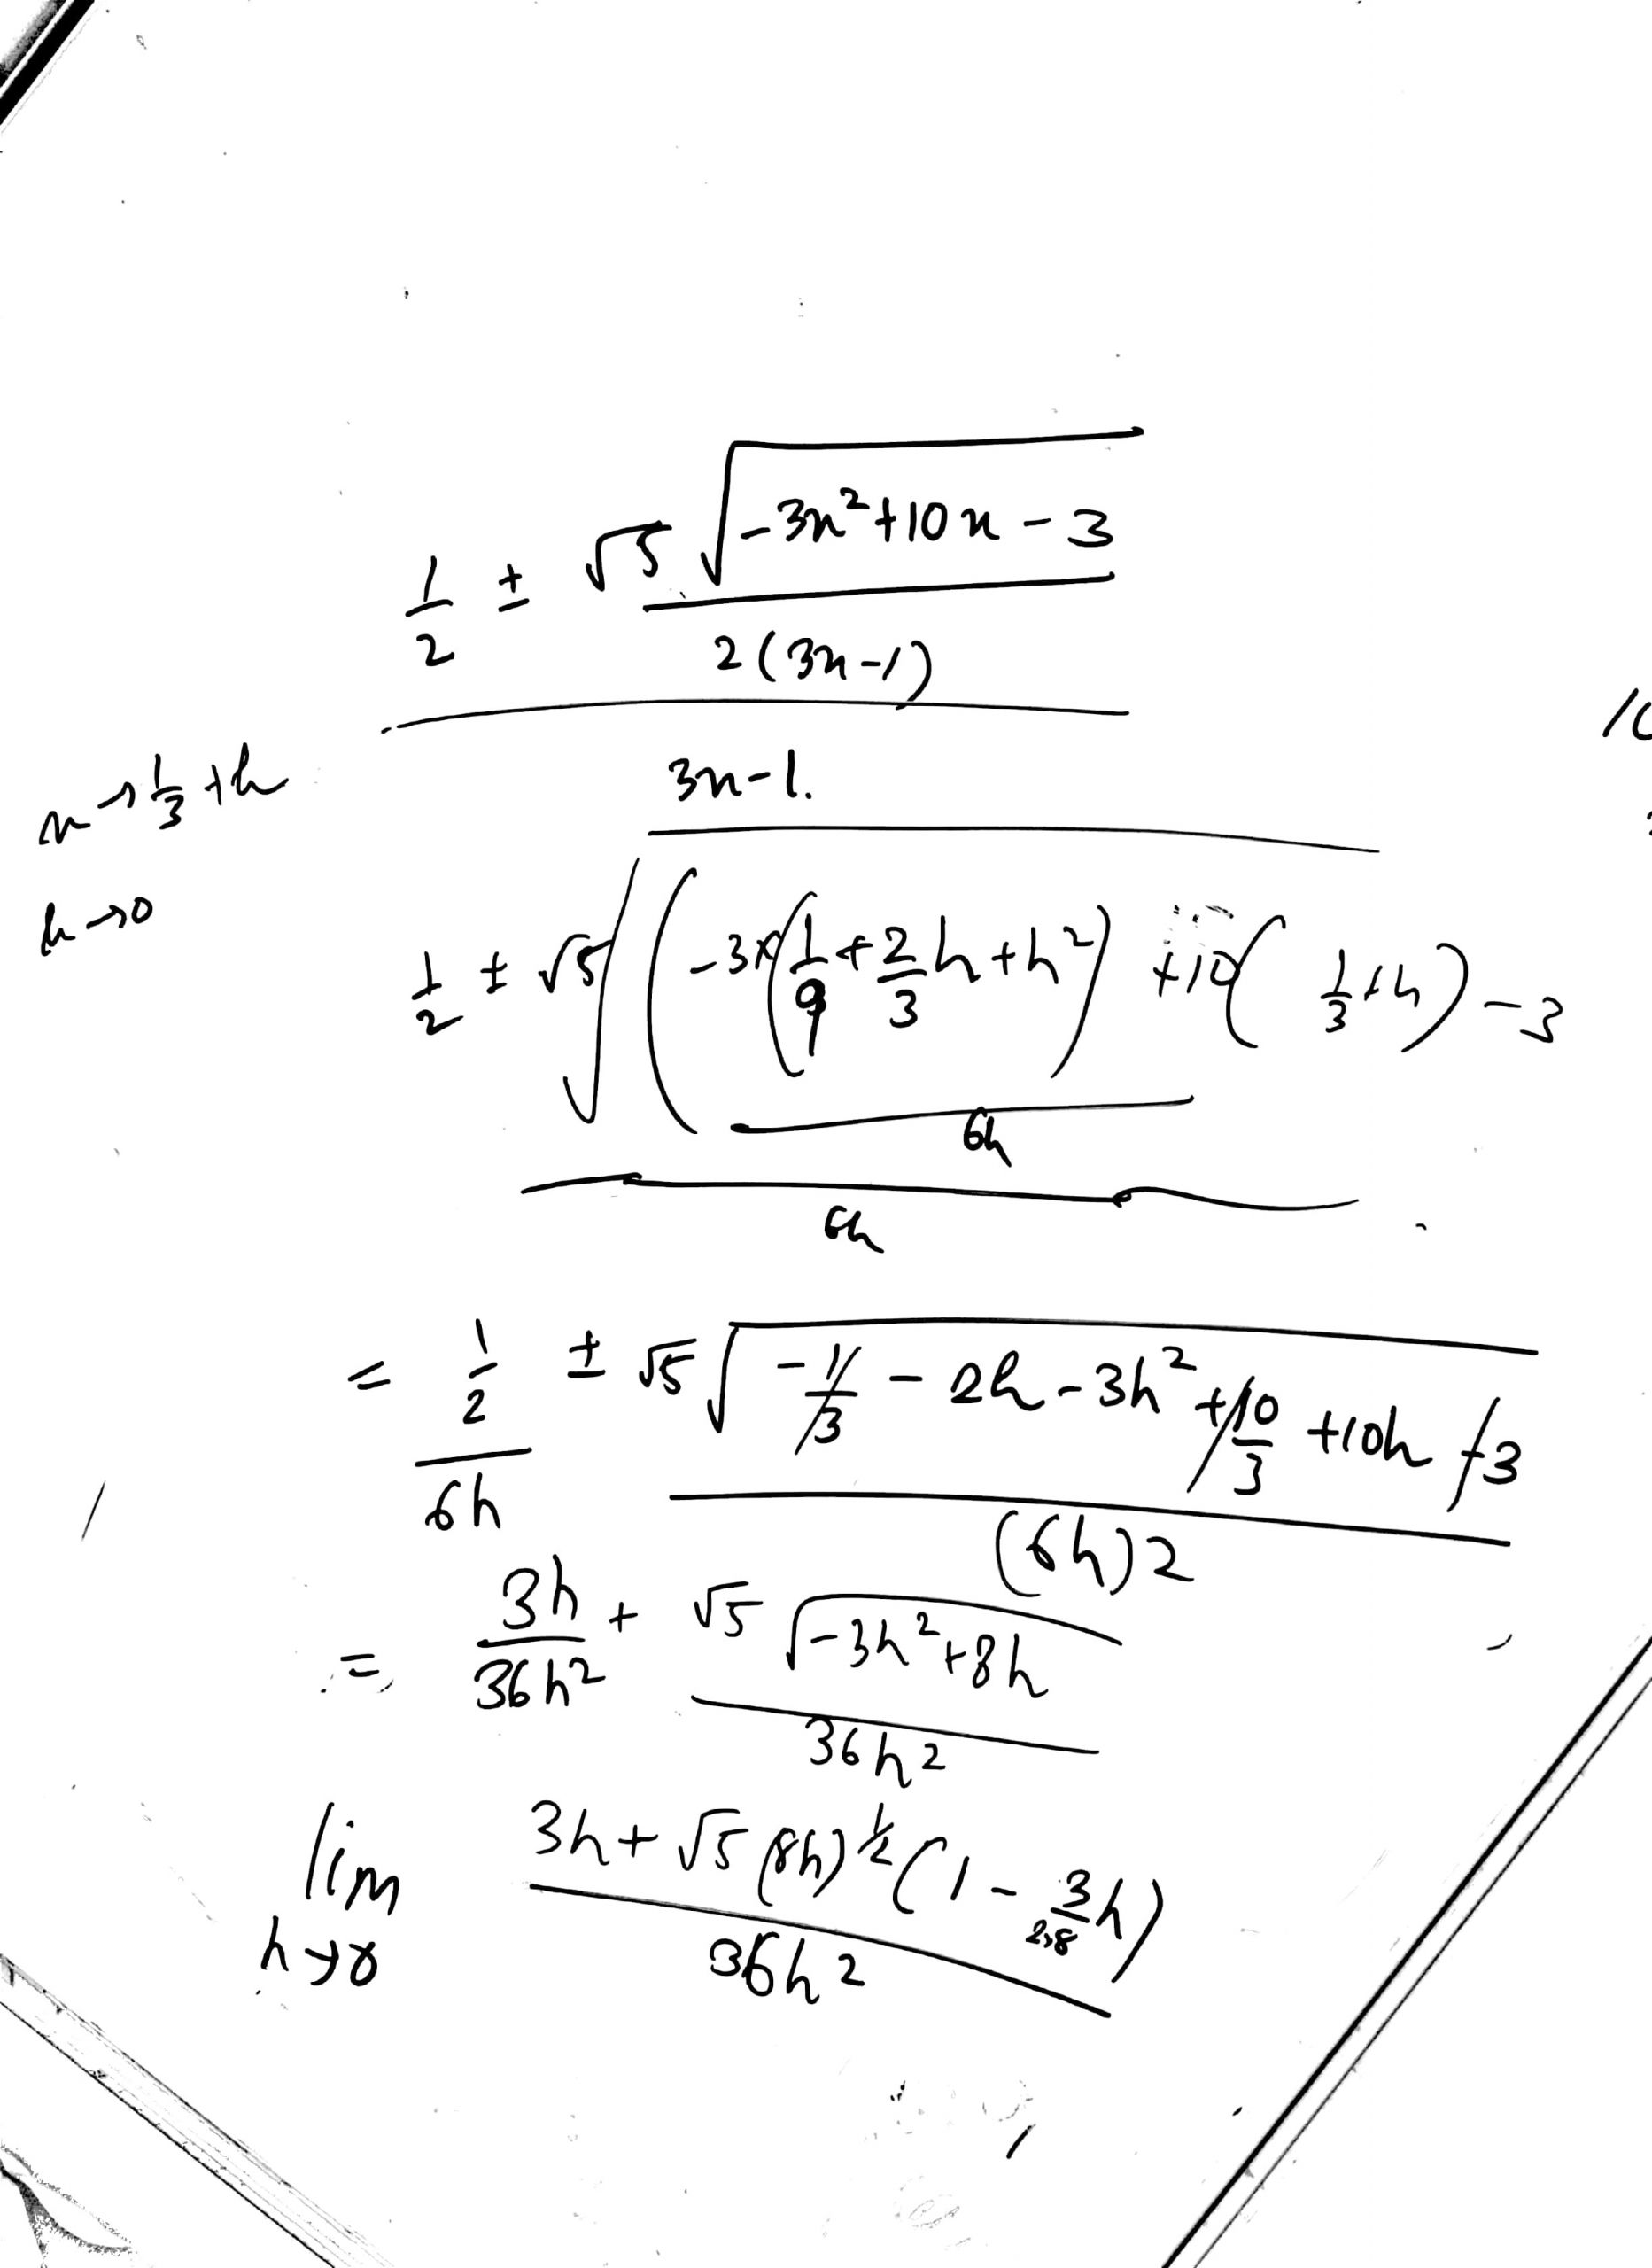 1/2 ± √5 √(-3x²+10x-3) / 2(3x-1)
3x-1.
x→1/3+h
h→0
1/2 ± √5 √((-3×(1/9+2/3 h+h²) +10(1/3+h)-3
6h
6h
= 1/2 / 6h ± √5 √(-1/3 - 2h-3h²+10/3+10h-3) / (6h)2
= 3h/36h² + √5 √(-3h²+8h) / 36h²
lim h→0 3h+√5(8h)^1/2(1-3/2×8 h) / 36h²